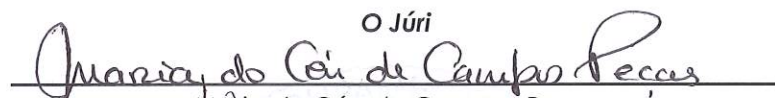 O Júri
Maria do Céu de Campos Pecas